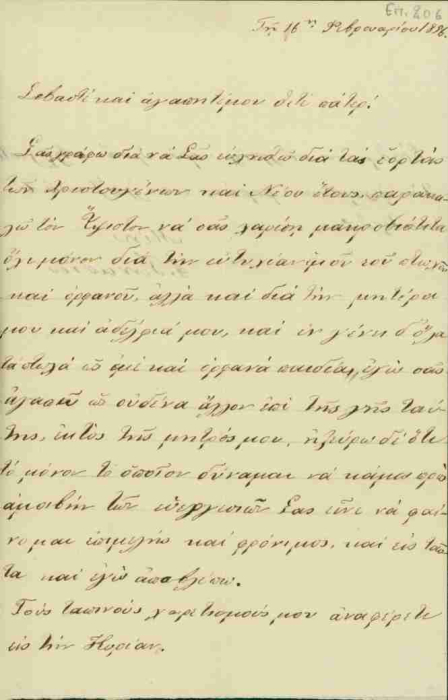 Επ. 206
Τῇ 16ῃ Φεβρουαρίου 1896.
Σεβαστὲ καὶ ἀγαπητέ μου θετὲ πάτερ!
Σᾶς γράφω διὰ νὰ Σᾶς εὐχηθῶ διὰ τὰς ἑορτὰς
τῶν Χριστουγένων καὶ Νέου ἔτους, παρακα-
λῶ τὸν Ὕψιστον νὰ σᾶς χαρίσῃ μακροβιότητα
ὄχι μόνον διὰ τὴν εὐτυχίαν μου τοῦ πτωχοῦ
καὶ ὀρφανοῦ, ἀλλὰ καὶ διὰ τὴν μητέρα
μου καὶ ἀδελφιά μου, καὶ ἐν γένει δι' ὅλα
τὰ ἀπολὰ ὡς ἐμὲ καὶ ὀρφανὰ παιδία, ἐγὼ σᾶς
ἀγαπῶ ὡς οὐδένα ἄλλον ἐπὶ τῆς γῆς ταύ-
της, ἐκτὸς τῆς μητρός μου, ἠξεύρω δὲ ὅτι
τὸ μόνον τὸ ὁποῖον δύναμαι νὰ κάμω πρὸς
ἀμοιβὴν τῶν εὐεργεσιῶν Σας εἶνε νὰ φαί-
νομαι ἐπιμελὴς καὶ φρόνιμος, καὶ εἰς ταῦ-
τα καὶ ἐγὼ ἀποβλέπω.
Τοὺς ταπινοὺς χαιρετισμούς μου ἀναφέρετε
εἰς τὴν Κυρίαν.